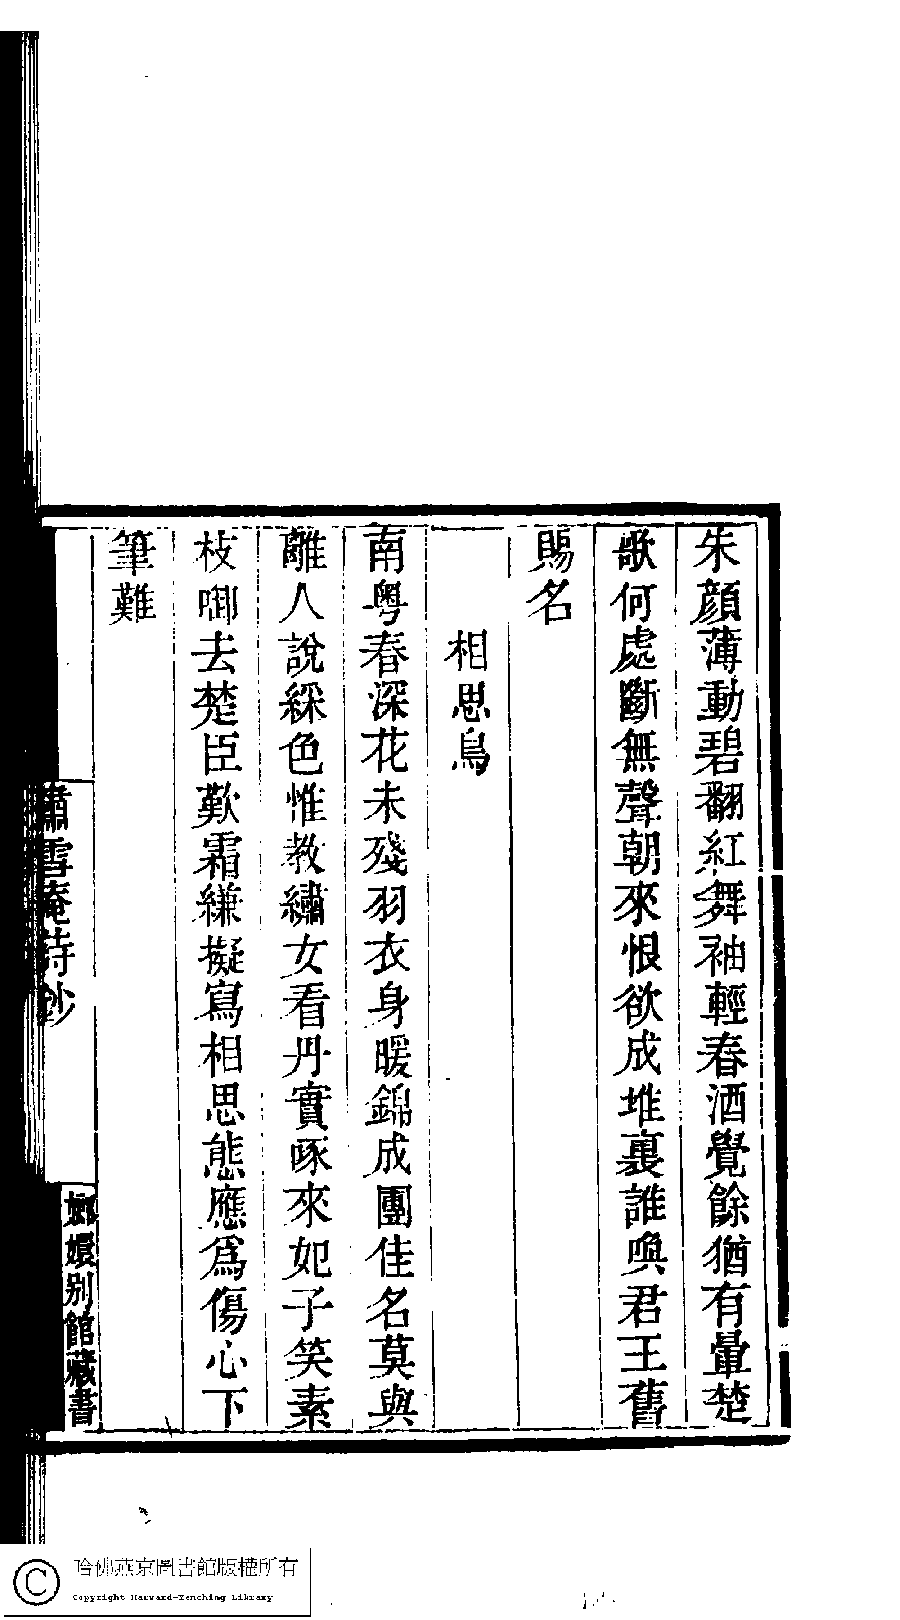 朱顔薄動碧翻紅舞袖輕春酒覺餘猶有暈楚
歌何處斷無聲朝來恨欲成堆裏誰喚君王舊
賜名
相思鳥
南粤春深花未殘羽衣身暖錦成團佳名莫與
離人說綵色惟教繡女看丹實啄來妃子笑素
枝啣去楚臣歎霜縑擬寫相思態應爲傷心下
筆難
嘯雪庵詩鈔
嫏嬛别館藏書
哈佛燕京圖書館版權所有
Copyright Harvard-Yenching Library